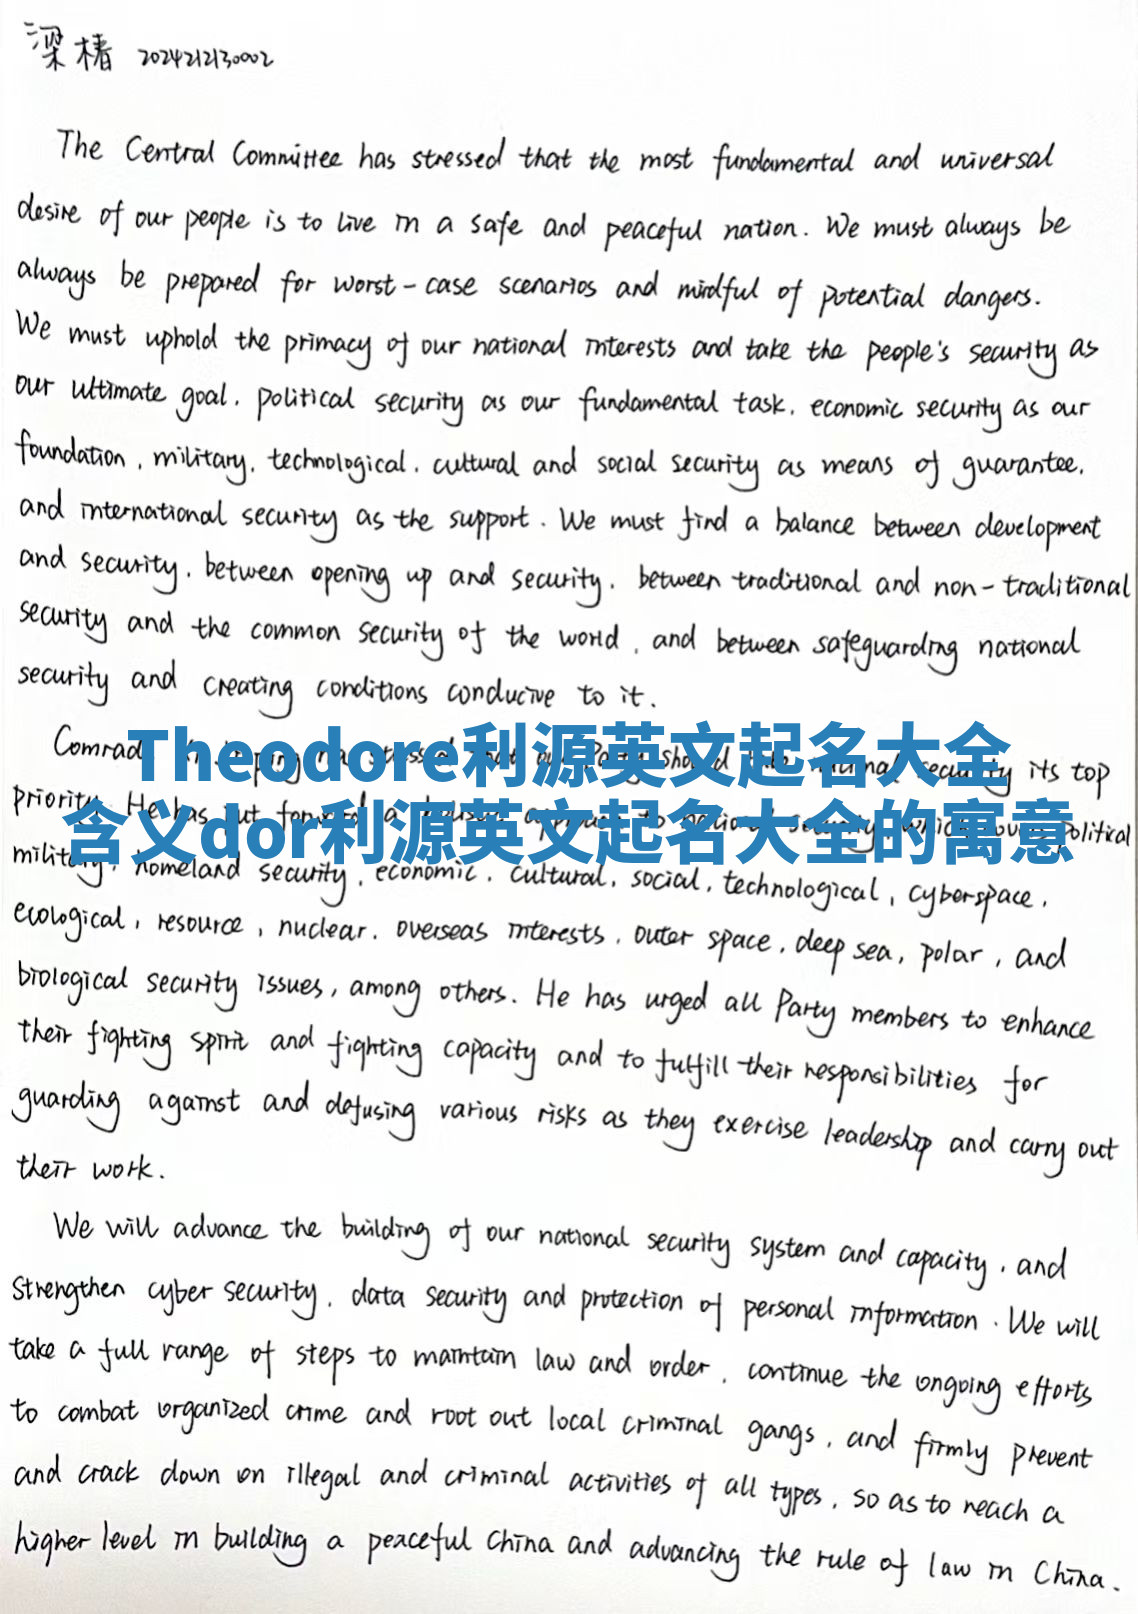 梁椿 2024212130002
The Central Committee has stressed that the most fundamental and universal
desire of our people is to live in a safe and peaceful nation. We must always be
always be prepared for worst-case scenarios and mindful of potential dangers.
We must uphold the primacy of our national interests and take the people's security as
our ultimate goal, political security as our fundamental task, economic security as our
foundation, military, technological, cultural and social security as means of guarantee,
and international security as the support. We must find a balance between development
and security, between opening up and security, between traditional and non-traditional
security and the common security of the world, and between safeguarding national
security and creating conditions conducive to it.
stressed Party national security its top
Theodore利源英文起名大全
priority. He has put forward a to national security, political
含义dor利源英文起名大全的寓意
military, homeland security, economic, cultural, social, technological, cyberspace,
ecological, resource, nuclear, overseas interests, outer space, deep sea, polar, and
biological security issues, among others. He has urged all Party members to enhance
their fighting spirit and fighting capacity and to fulfill their responsibilities for
guarding against and defusing various risks as they exercise leadership and carry out
their work.
We will advance the building of our national security system and capacity, and
strengthen cyber security, data security and protection of personal information. We will
take a full range of steps to maintain law and order, continue the ongoing efforts
to combat organized crime and root out local criminal gangs, and firmly prevent
and crack down on illegal and criminal activities of all types, so as to reach a
higher level in building a peaceful China and advancing the rule of law in China.